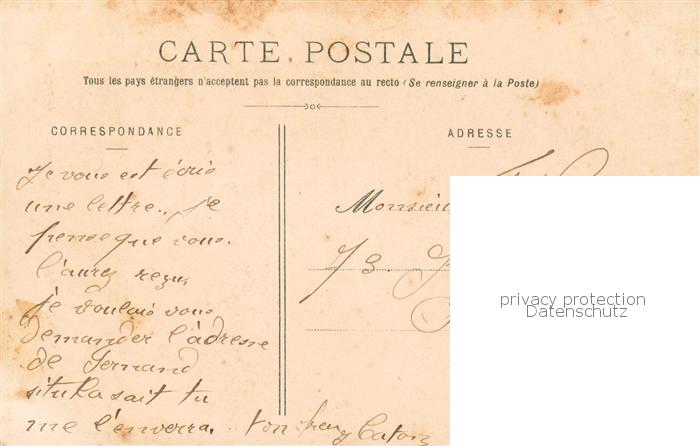 CARTE POSTALE
Tous les pays étrangers n'acceptent pas la correspondance au recto (Se renseigner à la Poste)
CORRESPONDANCE
ADRESSE
Je vous est écris
une lettre., je
pense que vous.
l'aurez reçu,
je voulais vous
demander l'àdresse
de Fernand
si tu la sait tu
me l'enverra. ton
Monsieu
73.
privacy protection
Datenschutz